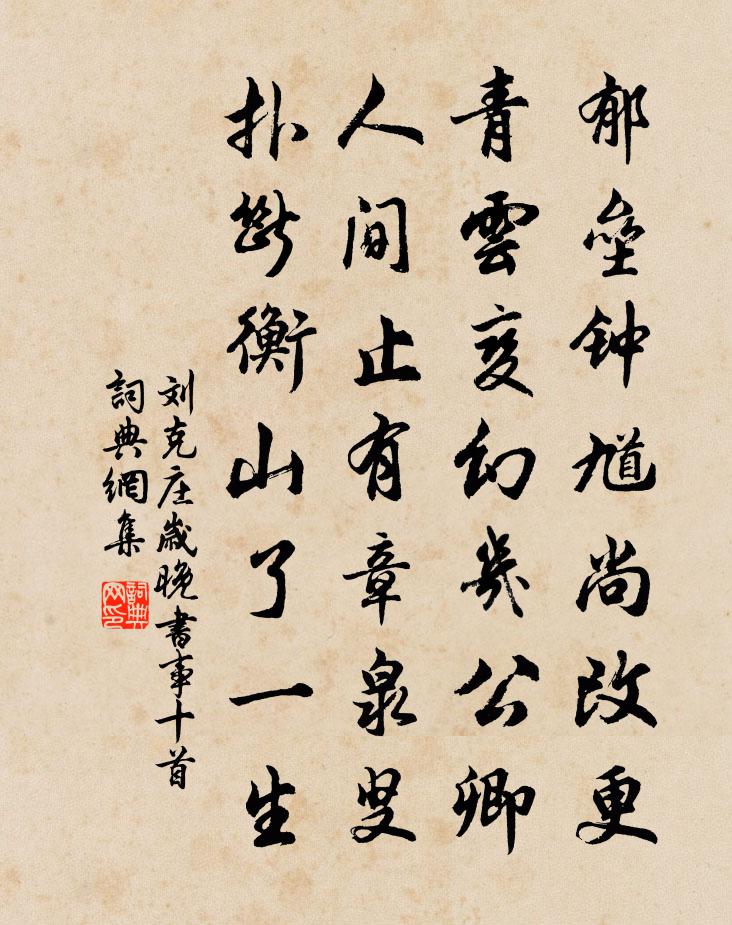 郁垒钟馗尚改更
青雲变幻幾公卿
人间止有章泉叟
扑断衡山了一生
刘克庄歲晚書事十首
詞典網集
詞典网印